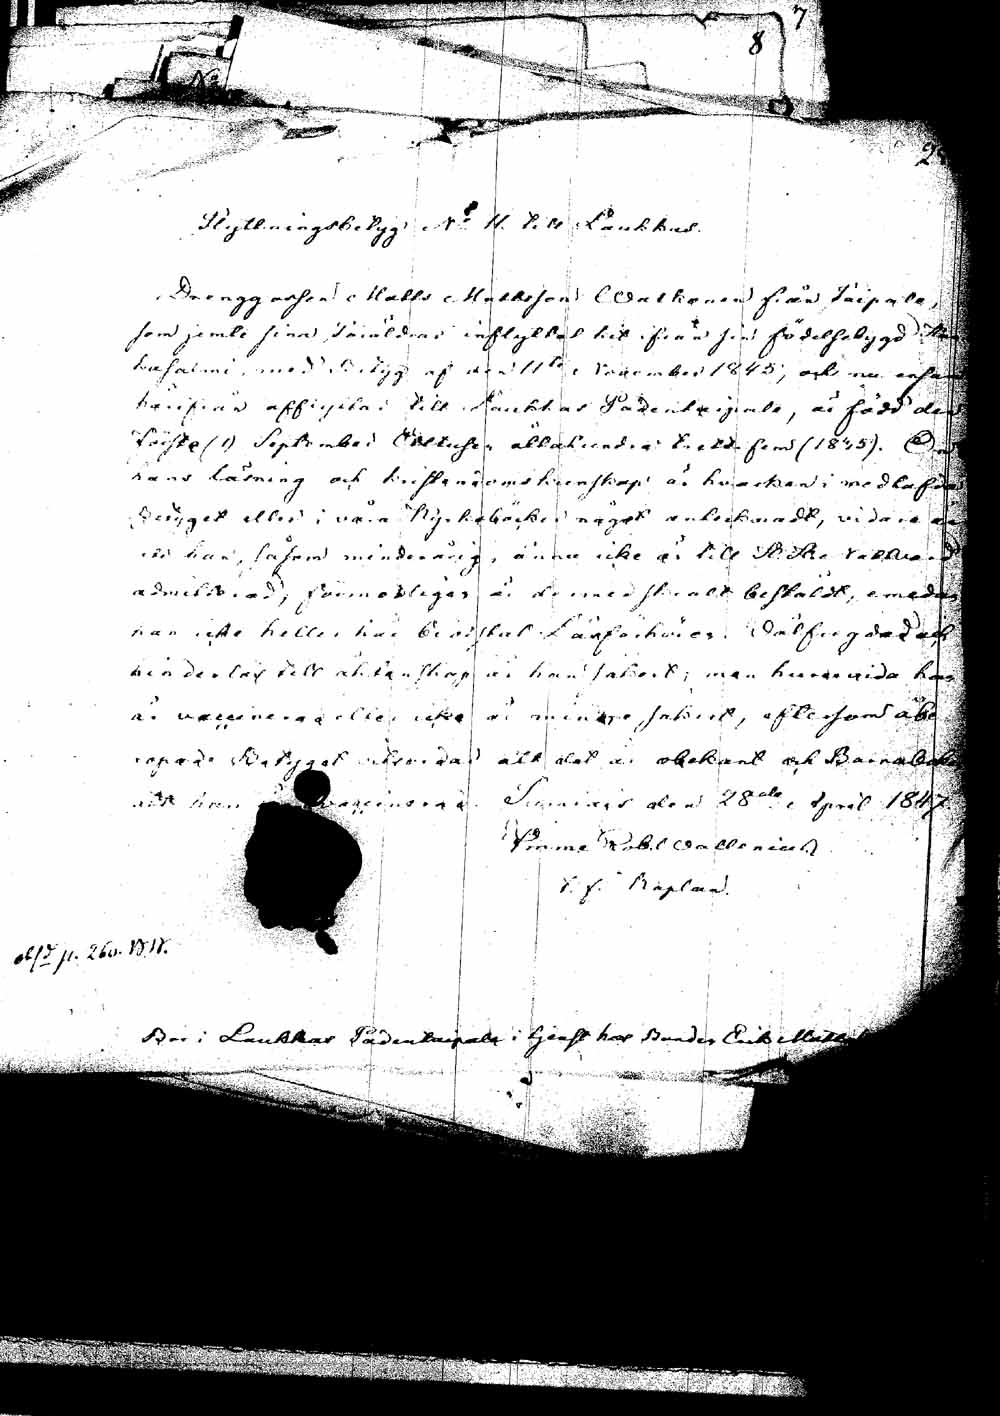 7
8
No
2
Flyttningsbetyg No 11. till Laukkas.
Drenggossen Matts Mattsson Watkanen från Taipale,
som jemte sina Föräldrar inflyttat hit ifrån sin födelsebygd
med Betyg af den 11te November 1845, och nu ensam
härifrån afflyttar till Laukkas Pådentaipale, är född den
Förste (1) September Ettusen åttahundra trettifem (1835). Om
hans läsning och kristendomskunskap är hvarken i medhafda
Betyget eller i våra Kyrkoböcker något antecknadt, vidare än
att han, såsom minderårig, ännu icke är till H. H. Nattvard
admitterad; förmodligen är dermed skralt bestäldt, emedan
han icke heller har bevistat Läseförhörer. Välfrejdad och
hinderlös till äktenskap är han säkert; men huruvida han
är vaccinerad eller icke är mindre säkert, eftersom åbe
ropade Betyget utvisar att det är obekant och Barnaboken
att han är vaccinerad. Sumiais den 28de April 1847.
Wallenius
v. f. Kaplan.
p. 260.
Bor i Laukkas Pådentaipale i tjenst hos Bonden Erik Matts